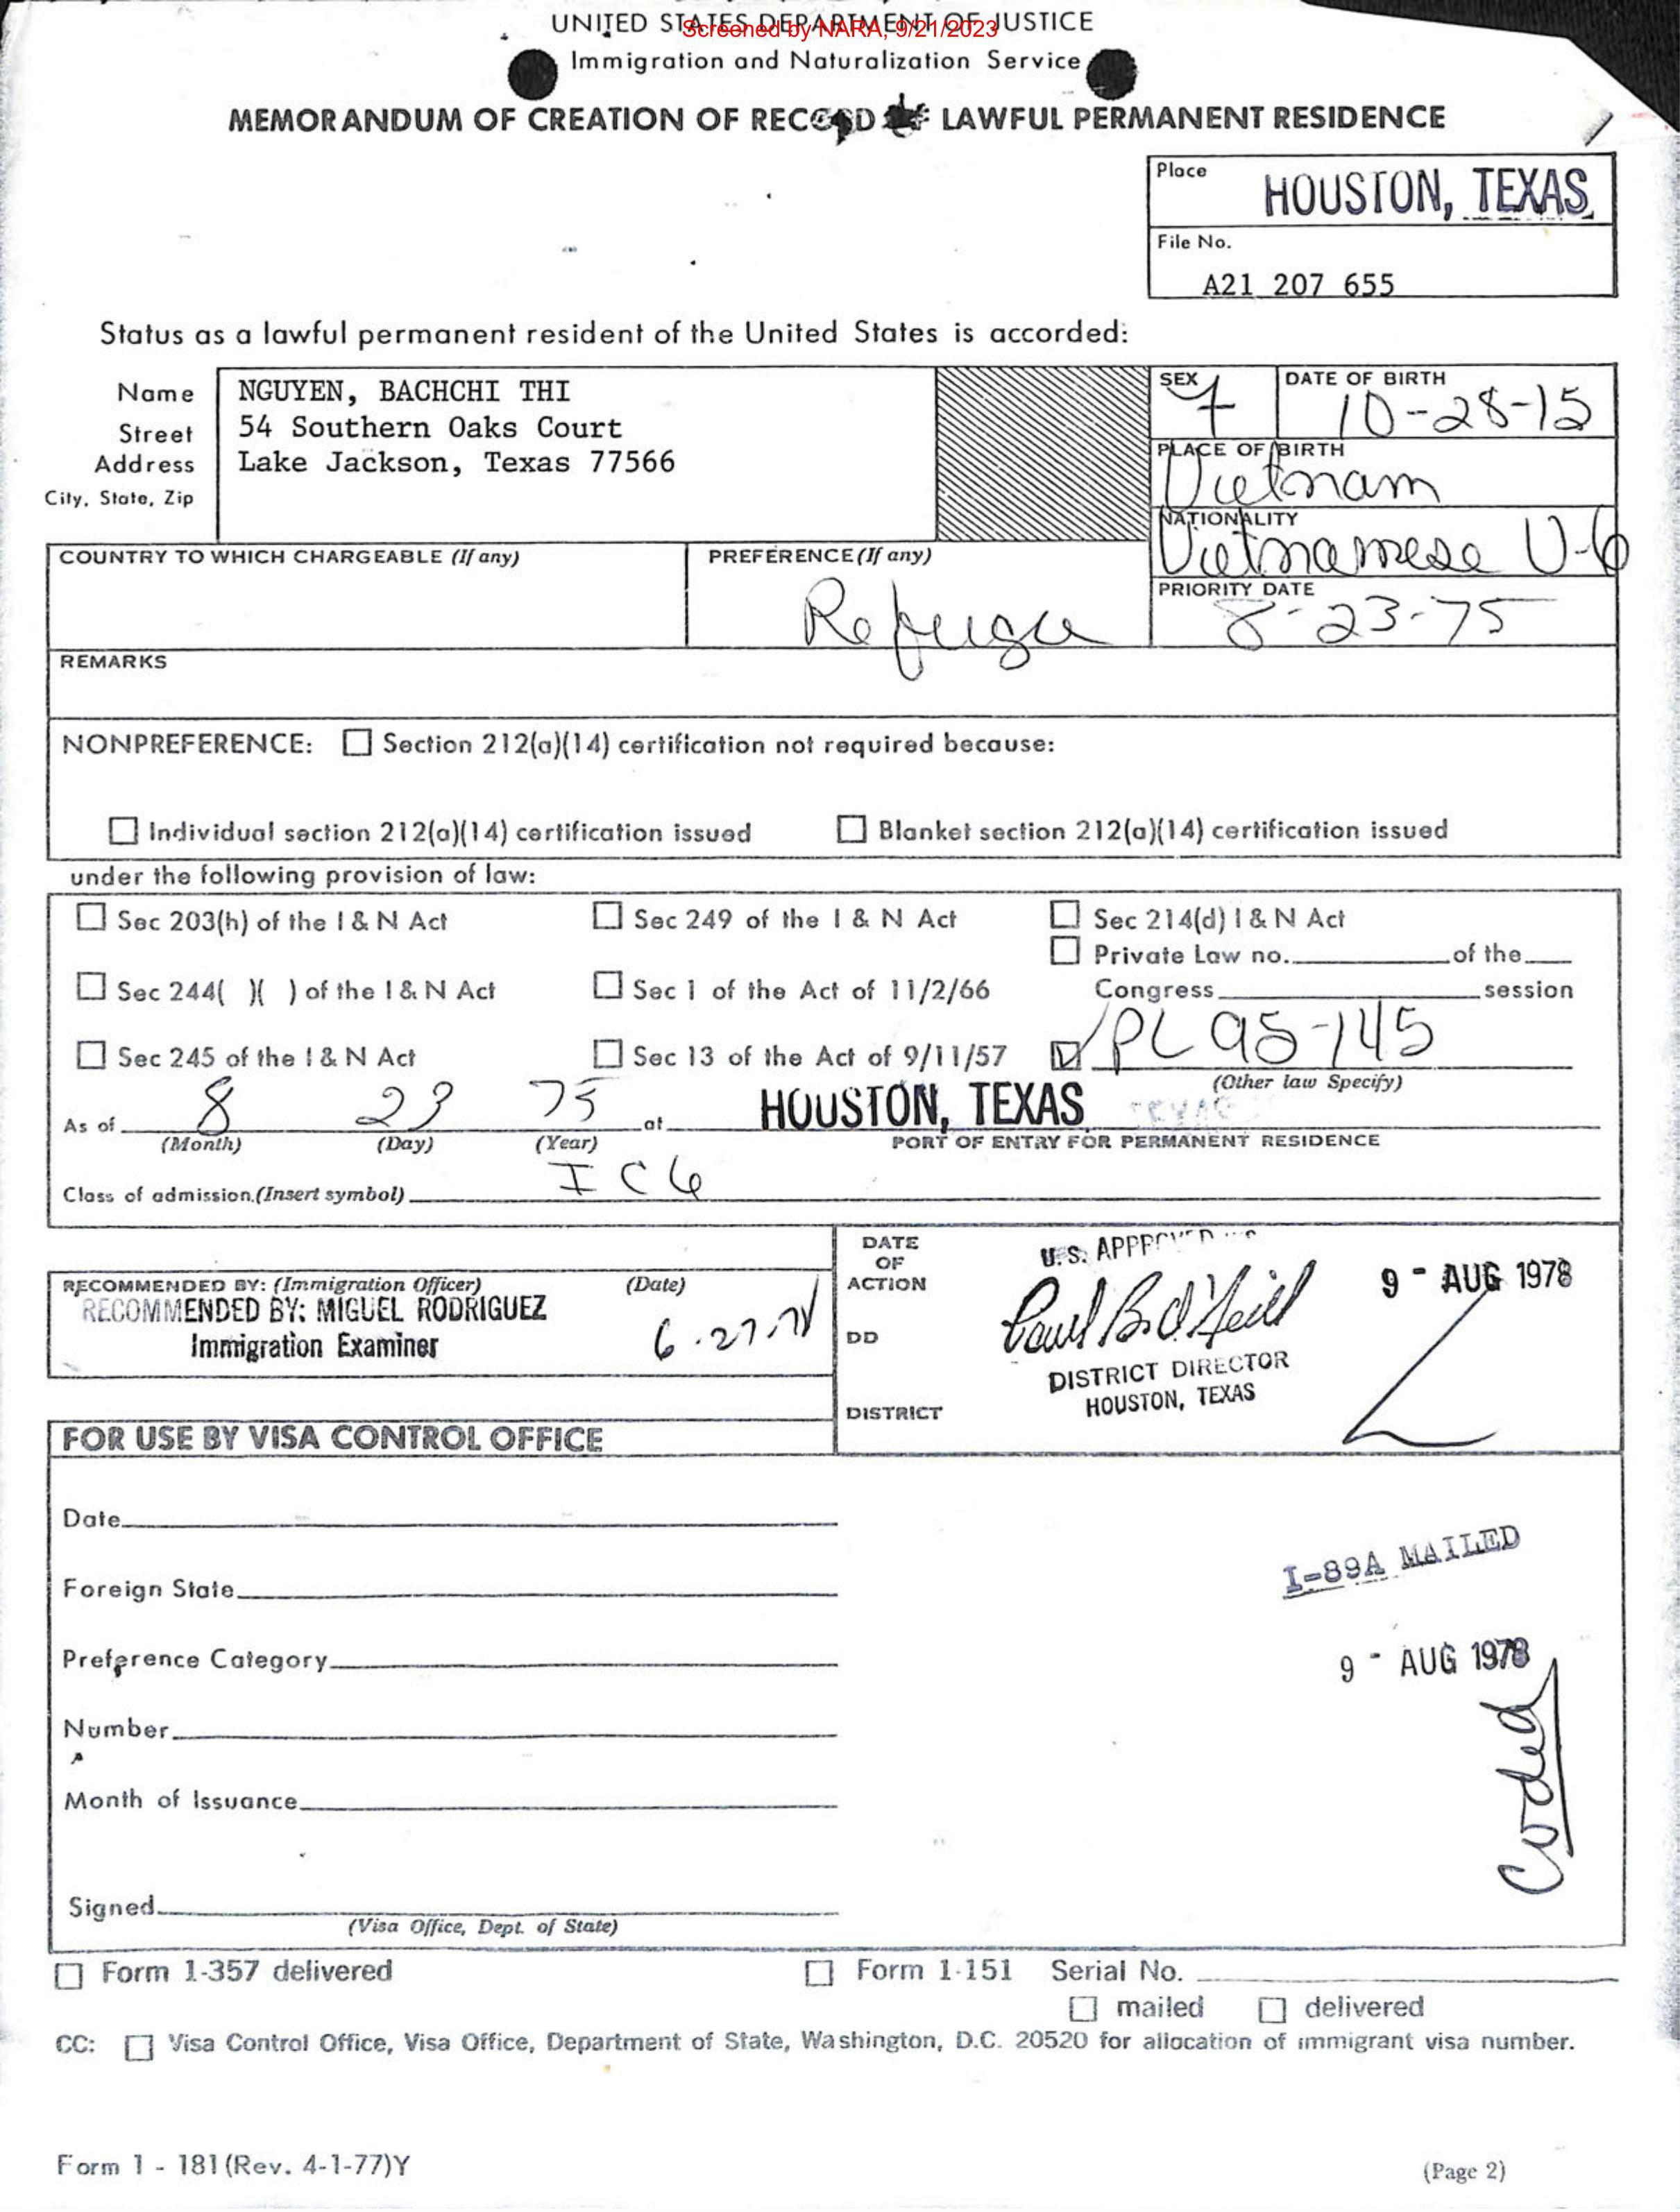 UNITED STATES DEPARTMENT OF JUSTICE
Screened by NARA, 9/21/2023
Immigration and Naturalization Service
MEMORANDUM OF CREATION OF RECORD OF LAWFUL PERMANENT RESIDENCE
Place
HOUSTON, TEXAS
File No.
A21 207 655
Status as a lawful permanent resident of the United States is accorded:
Name
NGUYEN, BACHCHI THI
SEX
F
DATE OF BIRTH
10-28-15
Street
54 Southern Oaks Court
Address
Lake Jackson, Texas 77566
City, State, Zip
PLACE OF BIRTH
Vietnam
NATIONALITY
Vietnamese V-6
COUNTRY TO WHICH CHARGEABLE (If any)
PREFERENCE (If any)
Refugee
PRIORITY DATE
8-23-75
REMARKS
NONPREFERENCE: Section 212(a)(14) certification not required because:
Individual section 212(a)(14) certification issued
Blanket section 212(a)(14) certification issued
under the following provision of law:
Sec 203(h) of the I & N Act
Sec 249 of the I & N Act
Sec 214(d) I & N Act
Private Law no. of the
Sec 244( )( ) of the I & N Act
Sec 1 of the Act of 11/2/66
Congress session
Sec 245 of the I & N Act
Sec 13 of the Act of 9/11/57
PL 95-145
(Other law Specify)
As of 8 23 75 at HOUSTON, TEXAS
(Month) (Day) (Year)
PORT OF ENTRY FOR PERMANENT RESIDENCE
Class of admission (Insert symbol) IC6
RECOMMENDED BY: (Immigration Officer) (Date)
RECOMMENDED BY: MIGUEL RODRIGUEZ
Immigration Examiner
6-27-78
DATE OF ACTION
U.S. APPROVED
9 - AUG 1978
DD
Paul B. O'Neill
DISTRICT DIRECTOR
HOUSTON, TEXAS
DISTRICT
FOR USE BY VISA CONTROL OFFICE
Date
Foreign State
I-89A MAILED
Preference Category
9 - AUG 1978
Number
Coded
Month of Issuance
Signed
(Visa Office, Dept. of State)
Form 1-357 delivered
Form 1-151 Serial No.
mailed delivered
CC: Visa Control Office, Visa Office, Department of State, Washington, D.C. 20520 for allocation of immigrant visa number.
Form 1 - 181 (Rev. 4-1-77)Y
(Page 2)